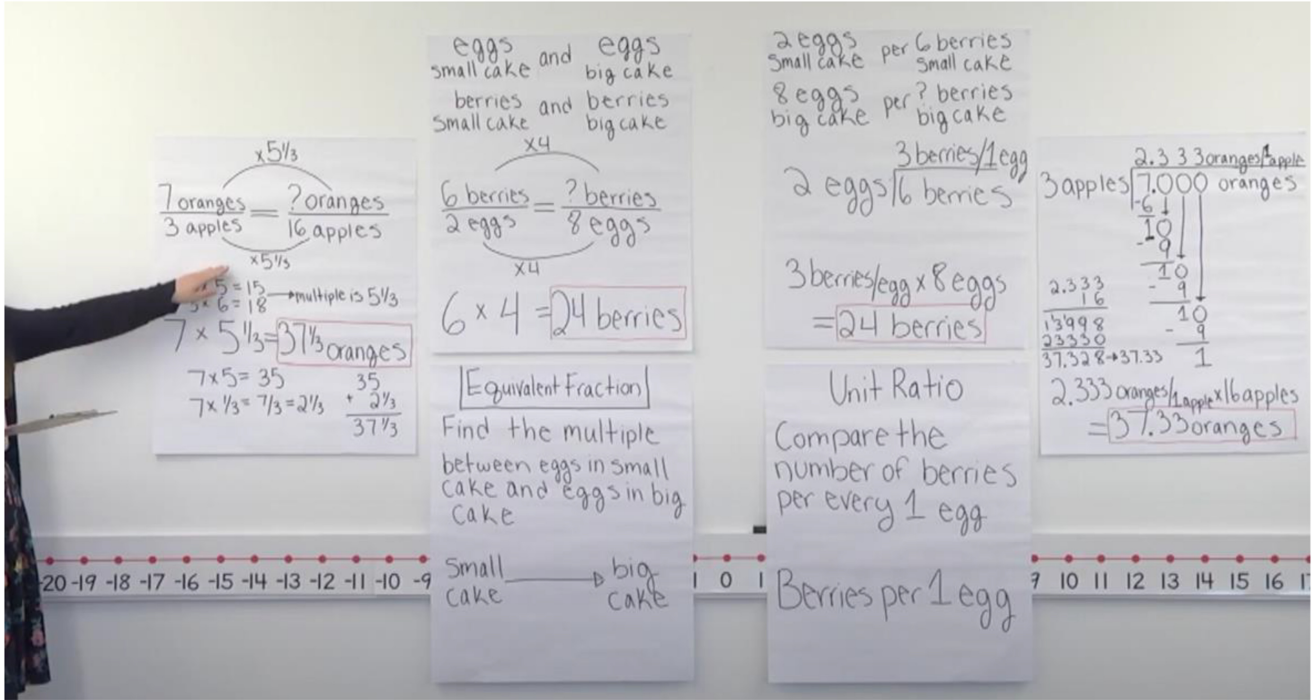 ×5⅓
7 oranges = ? oranges
3 apples 16 apples
×5⅓
5 = 15
× 6 = 18 → multiple is 5⅓
7 × 5⅓ = 37⅓ oranges
7×5 = 35
7×⅓ = 7/3 = 2⅓
35
+ 2⅓
37⅓
eggs and eggs
small cake big cake
berries and berries
small cake big cake
×4
6 berries = ? berries
2 eggs 8 eggs
×4
6 × 4 = 24 berries
Equivalent Fraction
Find the multiple
between eggs in small
cake and eggs in big
cake
small → big
cake cake
2 eggs per 6 berries
small cake small cake
8 eggs per ? berries
big cake big cake
3 berries/1 egg
2 eggs 6 berries
3 berries/egg × 8 eggs
= 24 berries
Unit Ratio
Compare the
number of berries
per every 1 egg
Berries per 1 egg
2.333 oranges/1 apple
3 apples 7.000 oranges
-6
10
- 9
10
- 9
10
- 9
1
2.333
16
13998
23330
37.328 → 37.33
2.333 oranges/1 apple × 16 apples
= 37.33 oranges
-20 -19 -18 -17 -16 -15 -14 -13 -12 -11 -10 -9 1 0 1 9 10 11 12 13 14 15 16 1